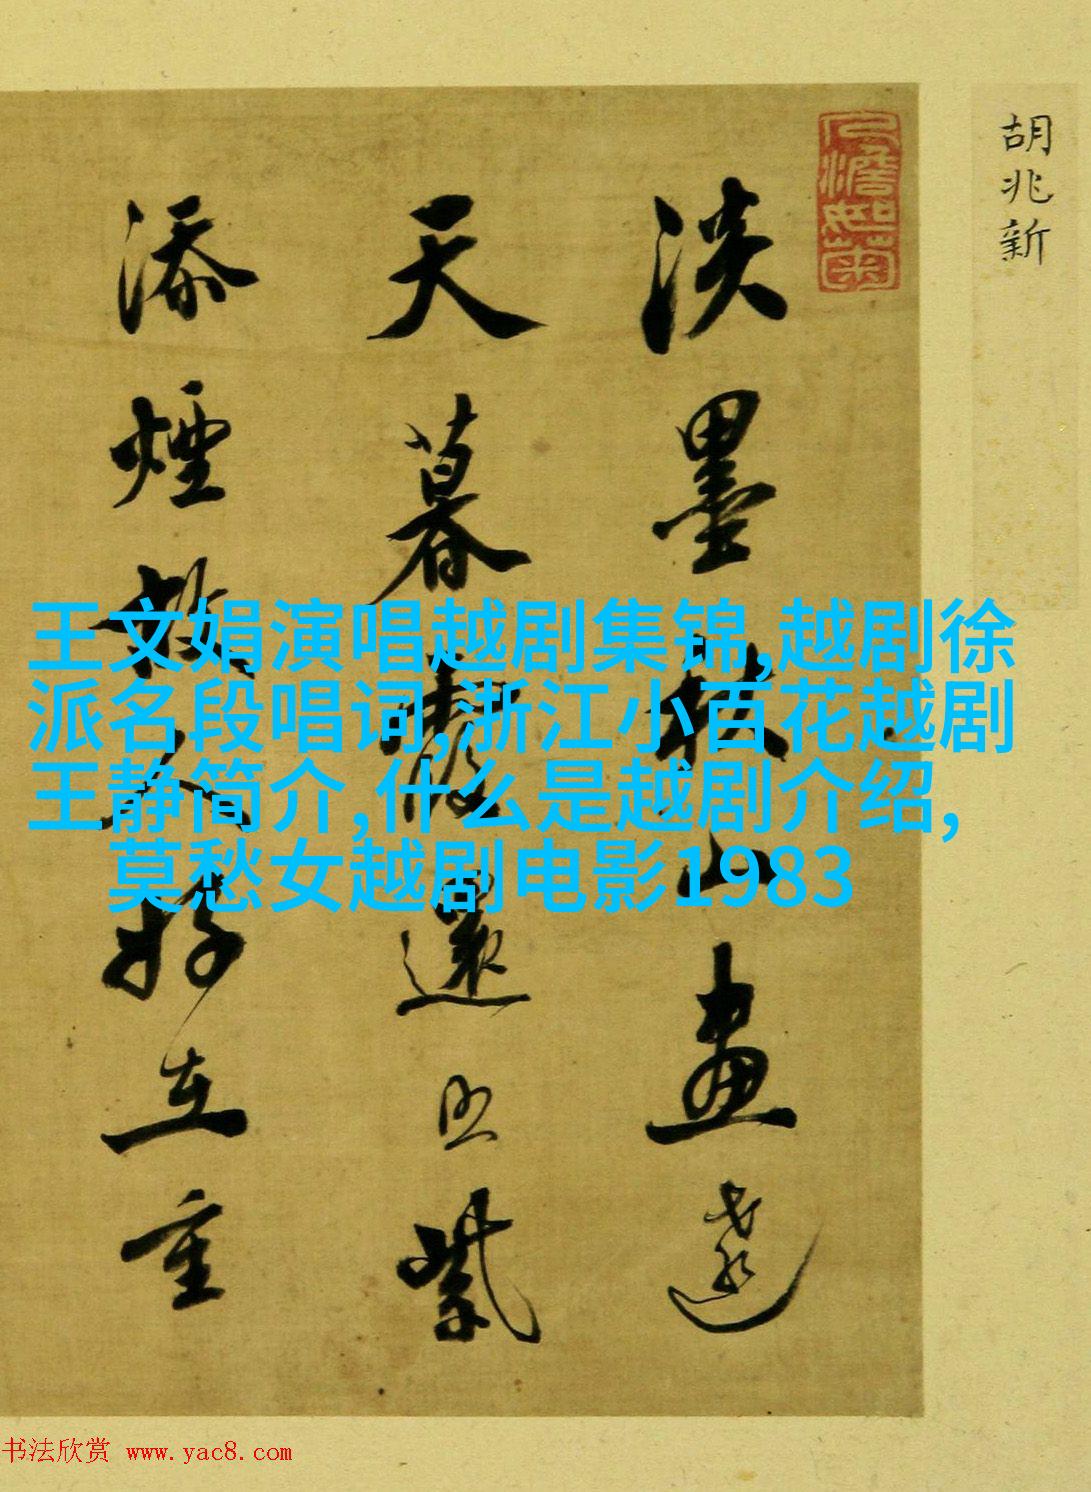 胡兆新
人澹如菊
淡墨秋山畫遠
天暮霞還照紫
添煙故人好在重
王文娟演唱越剧集锦,越剧徐
派名段唱词,浙江小百花越剧
王静简介,什么是越剧介绍,
莫愁女越剧电影1983
书法欣赏 www.yac8.com